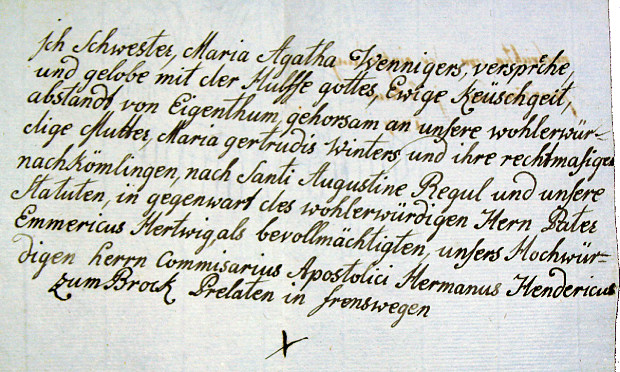 Ich Schwester, Maria Agatha Wennigers, verspriche,
und gelobe mit der Hulffe gottes, Ewige Keüschgeit,
abstandt von Eigenthum, gehorsam an unsere wohlerwür-
dige Mutter, Maria gertrudis Winters, und ihre rechtmasigen
nachkömlingen, nach Santi Augustine Regul und unsere
Statuten, in gegenwart des wohlerwürdigen Hern Pater
Emmericus Hertwig, als bevollmächtigten, unsers Hochwür-
digen herrn Commisarius Apostolici Hermanus Hendericus
zum Brock Prelaten in frenswegen
X